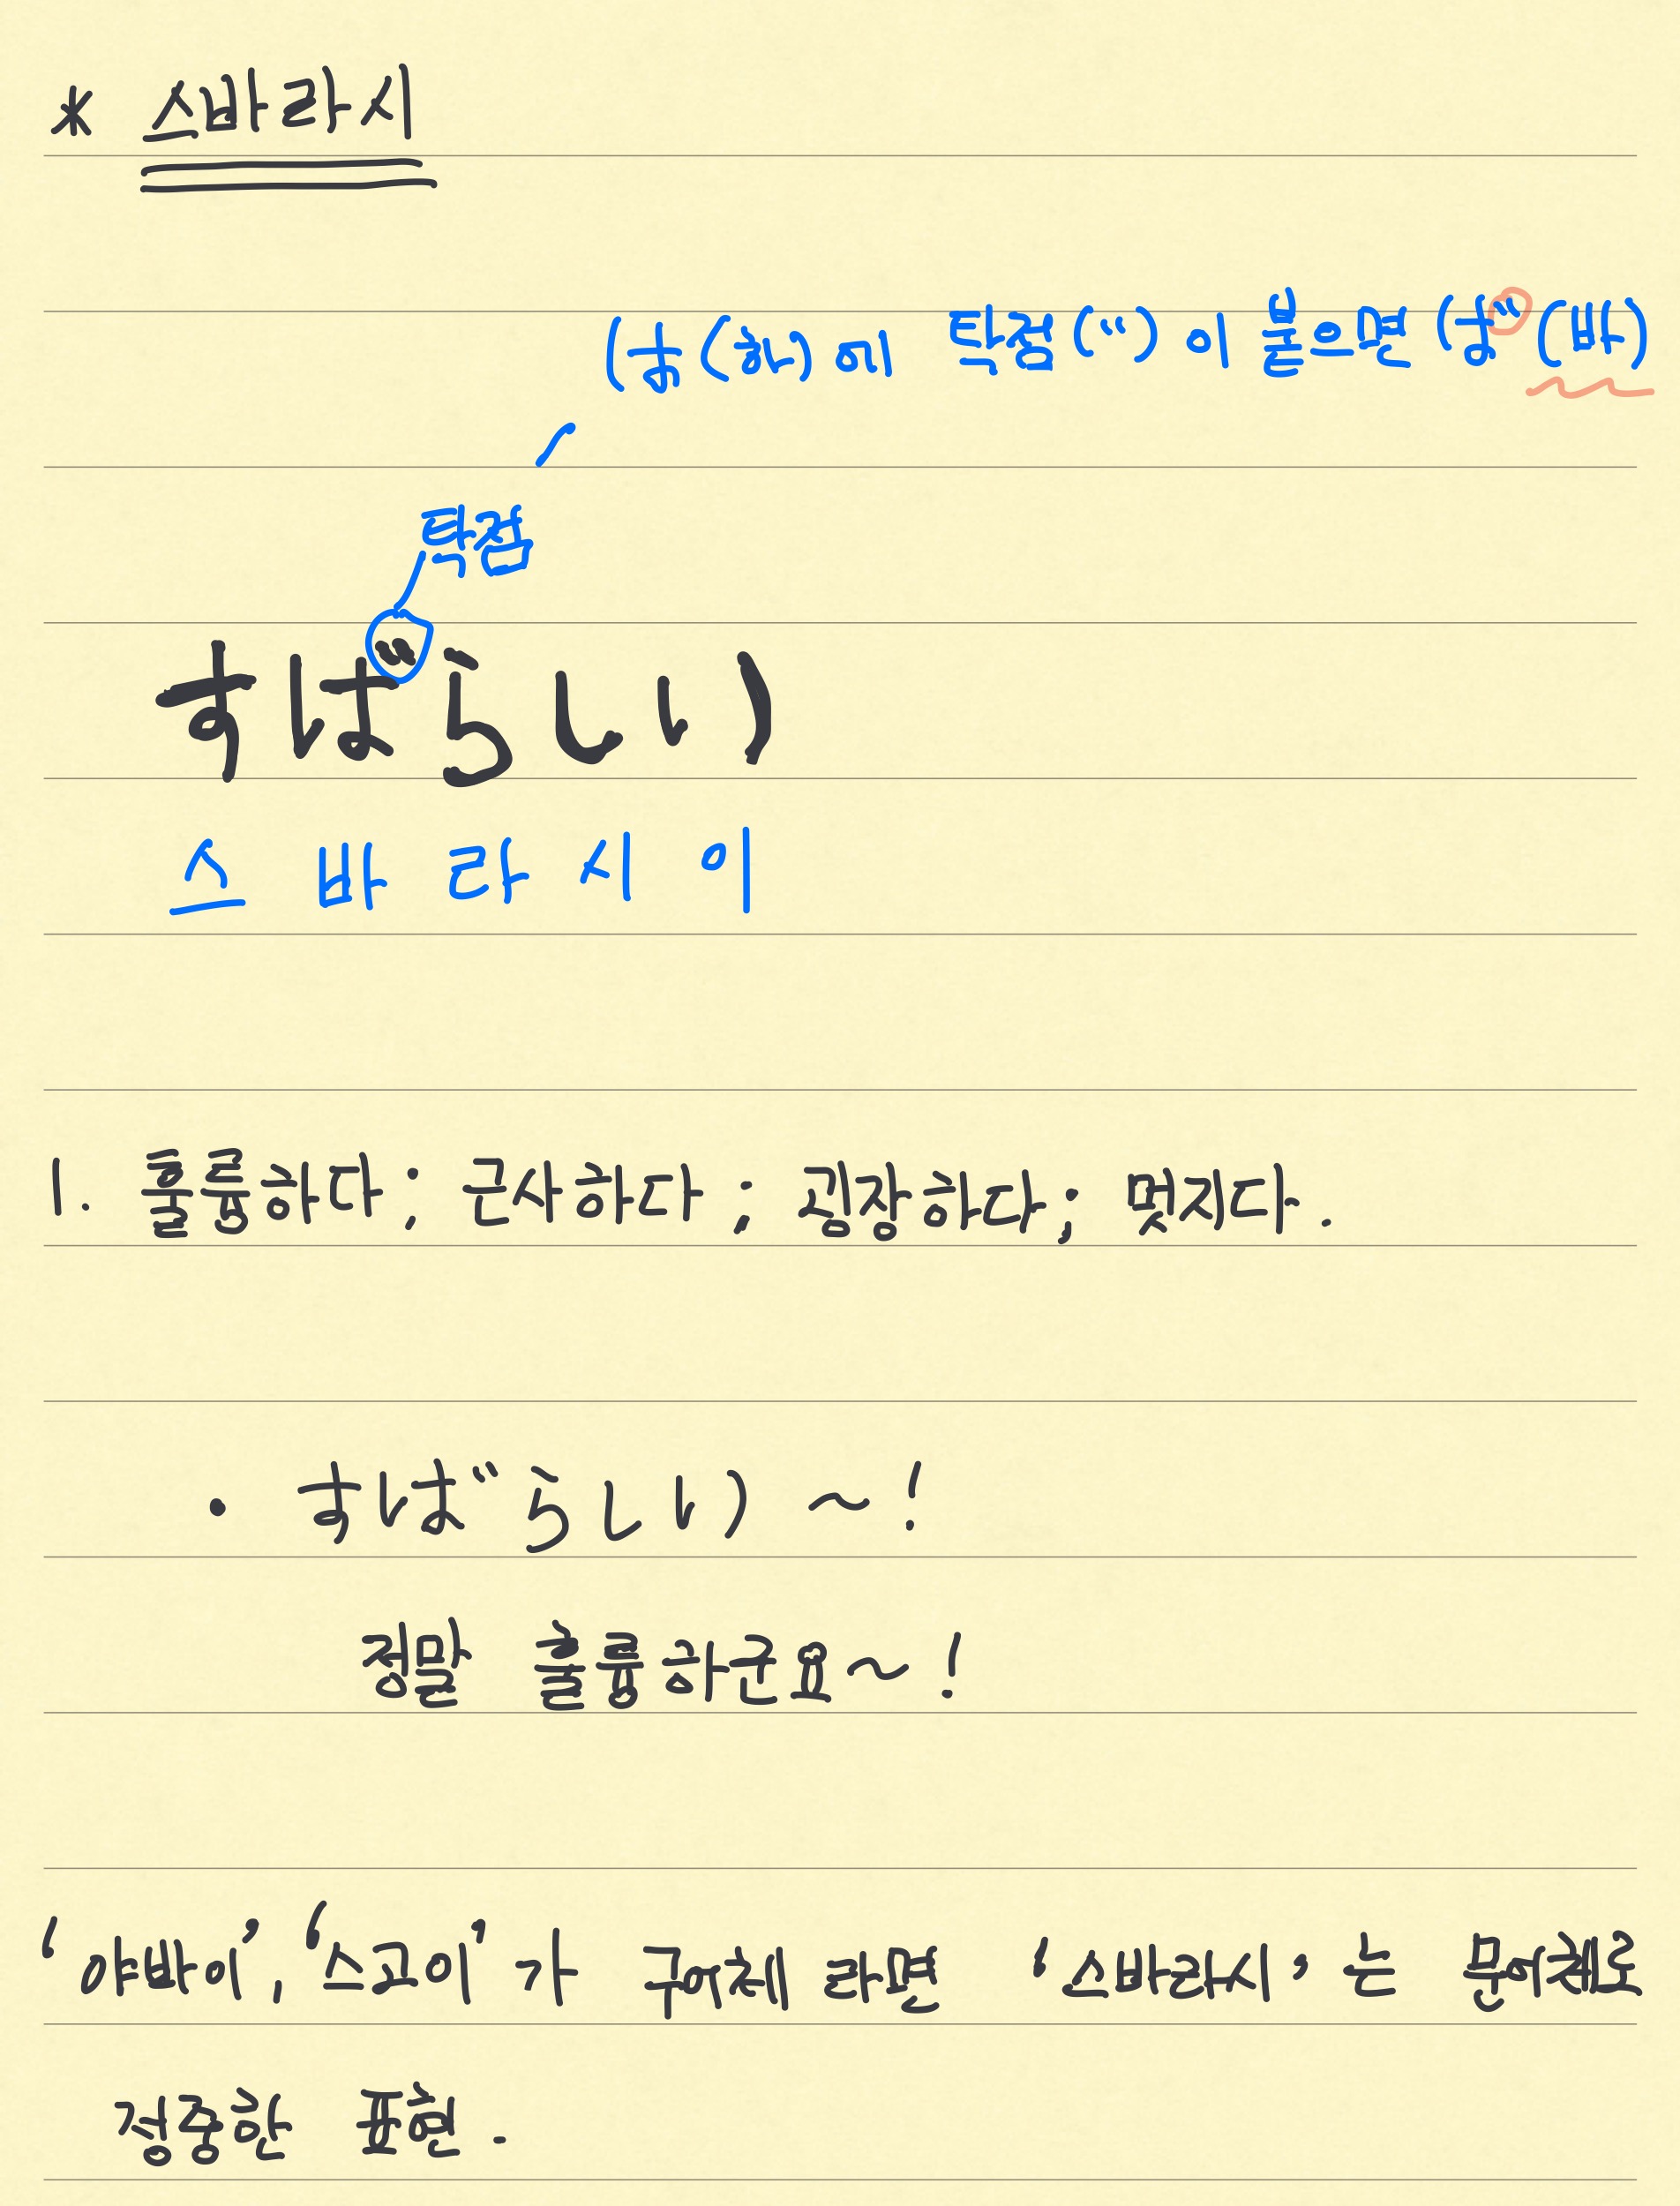 * 스바라시
は(하)에 탁점(〃)이 붙으면 ば(바)
탁점
すばらしい
스바라시이
1. 훌륭하다; 근사하다; 굉장하다; 멋지다.
• すばらしい~!
정말 훌륭하군요~!
'야바이', '스고이'가 구어체라면 '스바라시'는 문어체로
정중한 표현.